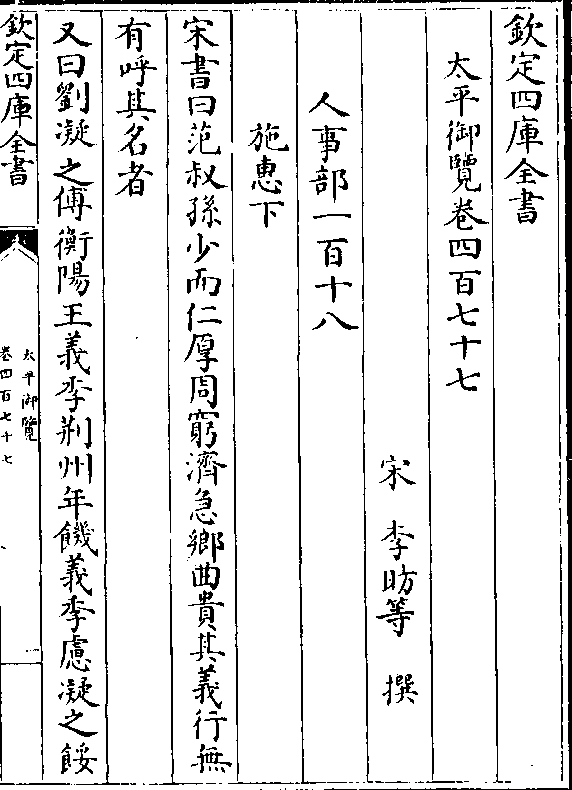 欽定四庫全書
太平御覽卷四百七十七
宋 李昉等 撰
人事部一百十八
施惠下
宋書曰范叔孫少而仁厚周窮濟急鄉曲貴其義行無
有呼其名者
又曰劉凝之傳衡陽王義季荊州年饑義季慮凝之餒
欽定四庫全書
太平御覽
卷四百七十七
一